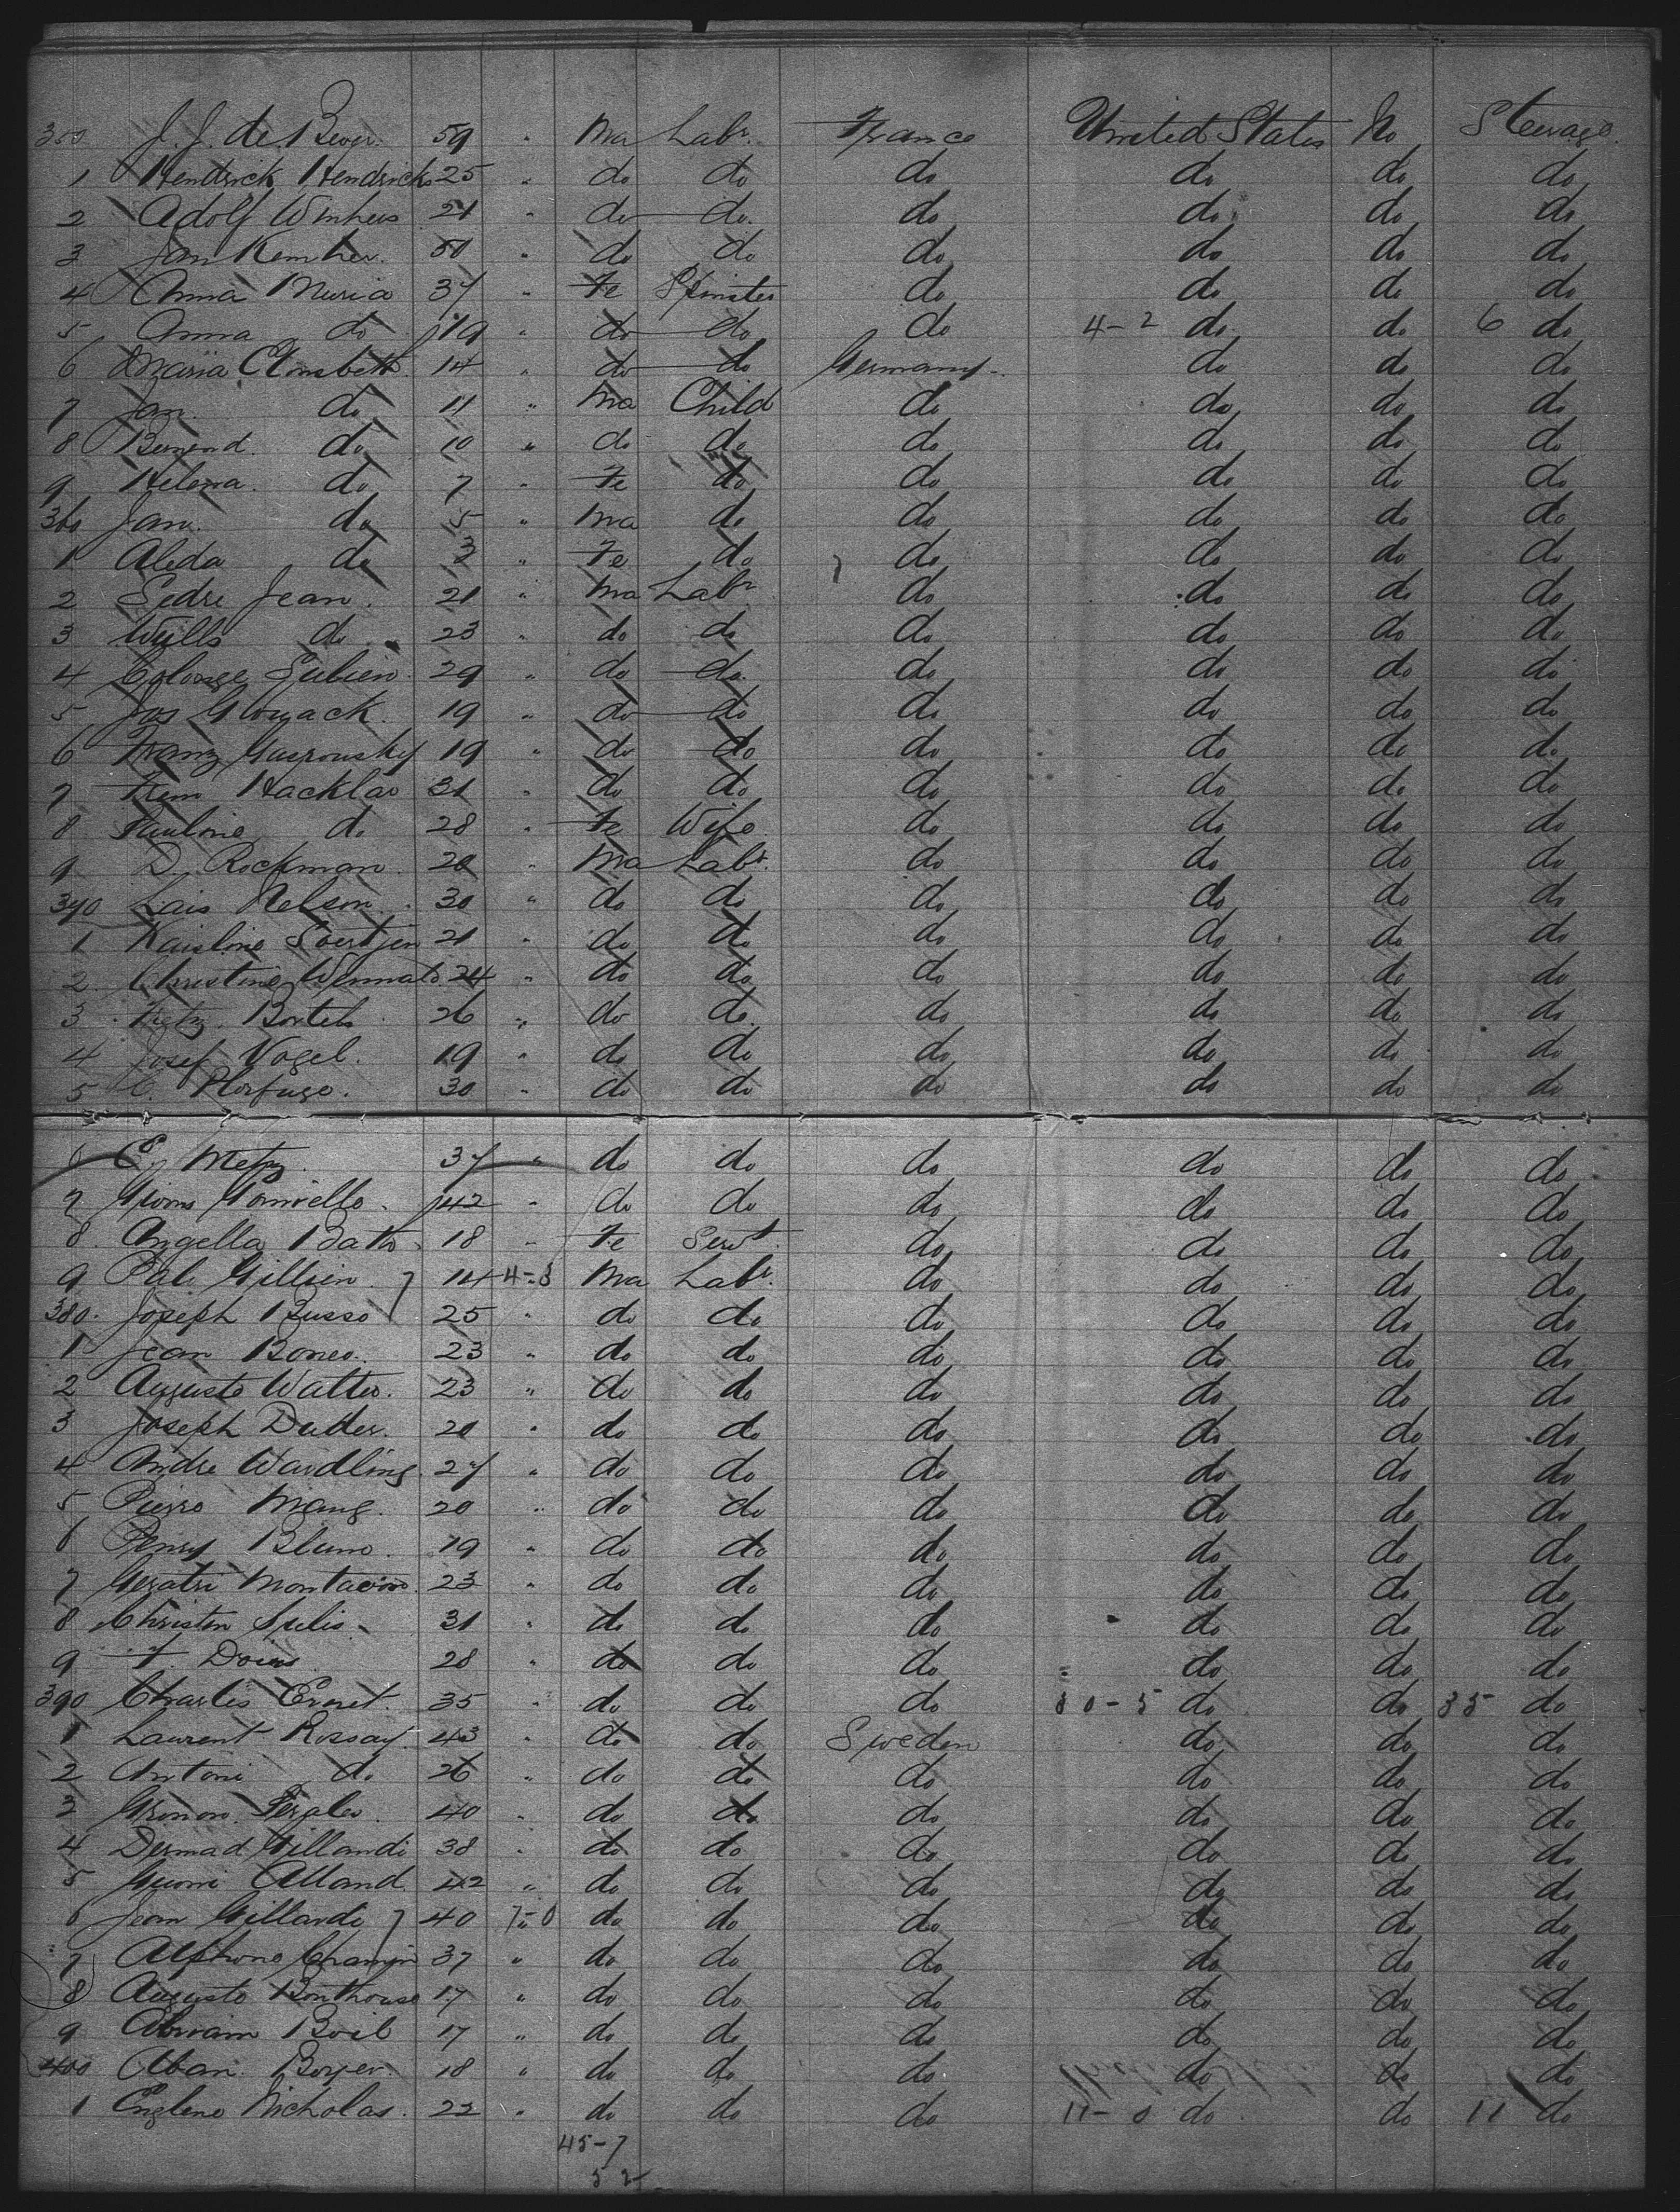 350 J. J. de Beuger. 59 " Ma Labr. France United States No Steerage.
1 Hendrick Hendricks 25 " do do do do do do
2 Adolf Winters 21 " do do. do do do do
3 Jan Kemher. 50 " do do do do do do
4 Anna Maria 37 " Fe Spinster do do do do
5 Anna do 19 " do do do 4-2 do do 6 do
6 Maria Elonsbeth 14 " do do Germany. do do do
7 Jan. do 11 " Ma Child do do do do
8 Berend. do 10 " do do do do do do
9 Helena. do 7 " Fe do do do do do
360 Jan. do 5 " Ma do do do do do
1 Aleda do 3 " Fe do do do do do
2 Sedre Jean. 21 " Ma Labr do do do do
3 Weills do 23 " do do do do do do
4 Colonge Julien. 29 " do do. do do do do
5 Jos Glowack. 19 " do do do do do do
6 Franz Gusrousky 19 " do do do do do do
7 Hacklar 31 " do do do do do do
8 Pauline do 28 " Fe Wife do do do do
9 D. Rockman. 20 " Ma Labr. do do do do
370 Lais Nelson. 30 " do do do do do do
1 21 " do do do do do do
2 Christine 24 " do do do do do do
3 Bartels 26 " do do. do do do do
4 Josef Vogel. 19 " do do do do do do
5 C. 30 " do do do do do do
6 E. Metz. 37 " do do do do do do
7 42 " do do do do do do
8 Angella Batto 18 " Fe Servt. do do do do
9 Pal. Gillsin. 14 4-3 Ma Labr. do do do do
380. Joseph Busso 25 " do do do do do do
1 Jean Boneo. 23 " do do do do do do
2 Auguste Walter. 23 " do do do do do do
3 Joseph Dutter. 20 " do do do do do do
4 Andre Wardling. 27 " do do do do do do
5 Pierre Mang. 20 " do do do do do do
6 Henry Blum. 19 " do do do do do do
7 23 " do do do do do do
8 Christen 31 " do do do do do do
9 F. 28 " do do do do do do
390 Charles Ernet. 35 " do do do 30-5 do do 35 do
1 Laurent Rossay. 43 " do do Sweden do do do
2 Antoni do 26 " do do do do do do
3 40 " do do do do do do
4 Dermad Gillandi 38 " do do do do do do
5 Alland. 42 " do do do do do do
6 Jean Gillardi 40 7-0 do do do do do do
7 Alphone 37 " do do do do do do
8 Auguste Bonthouse 17 " do do do do do do
9 Abraim Boil 17 " do do do do do do
400 Alban. Boyer. 18 " do do do do do do
1 Englene Nicholas. 22 " do do do 11-0 do do 11 do
45-7
52